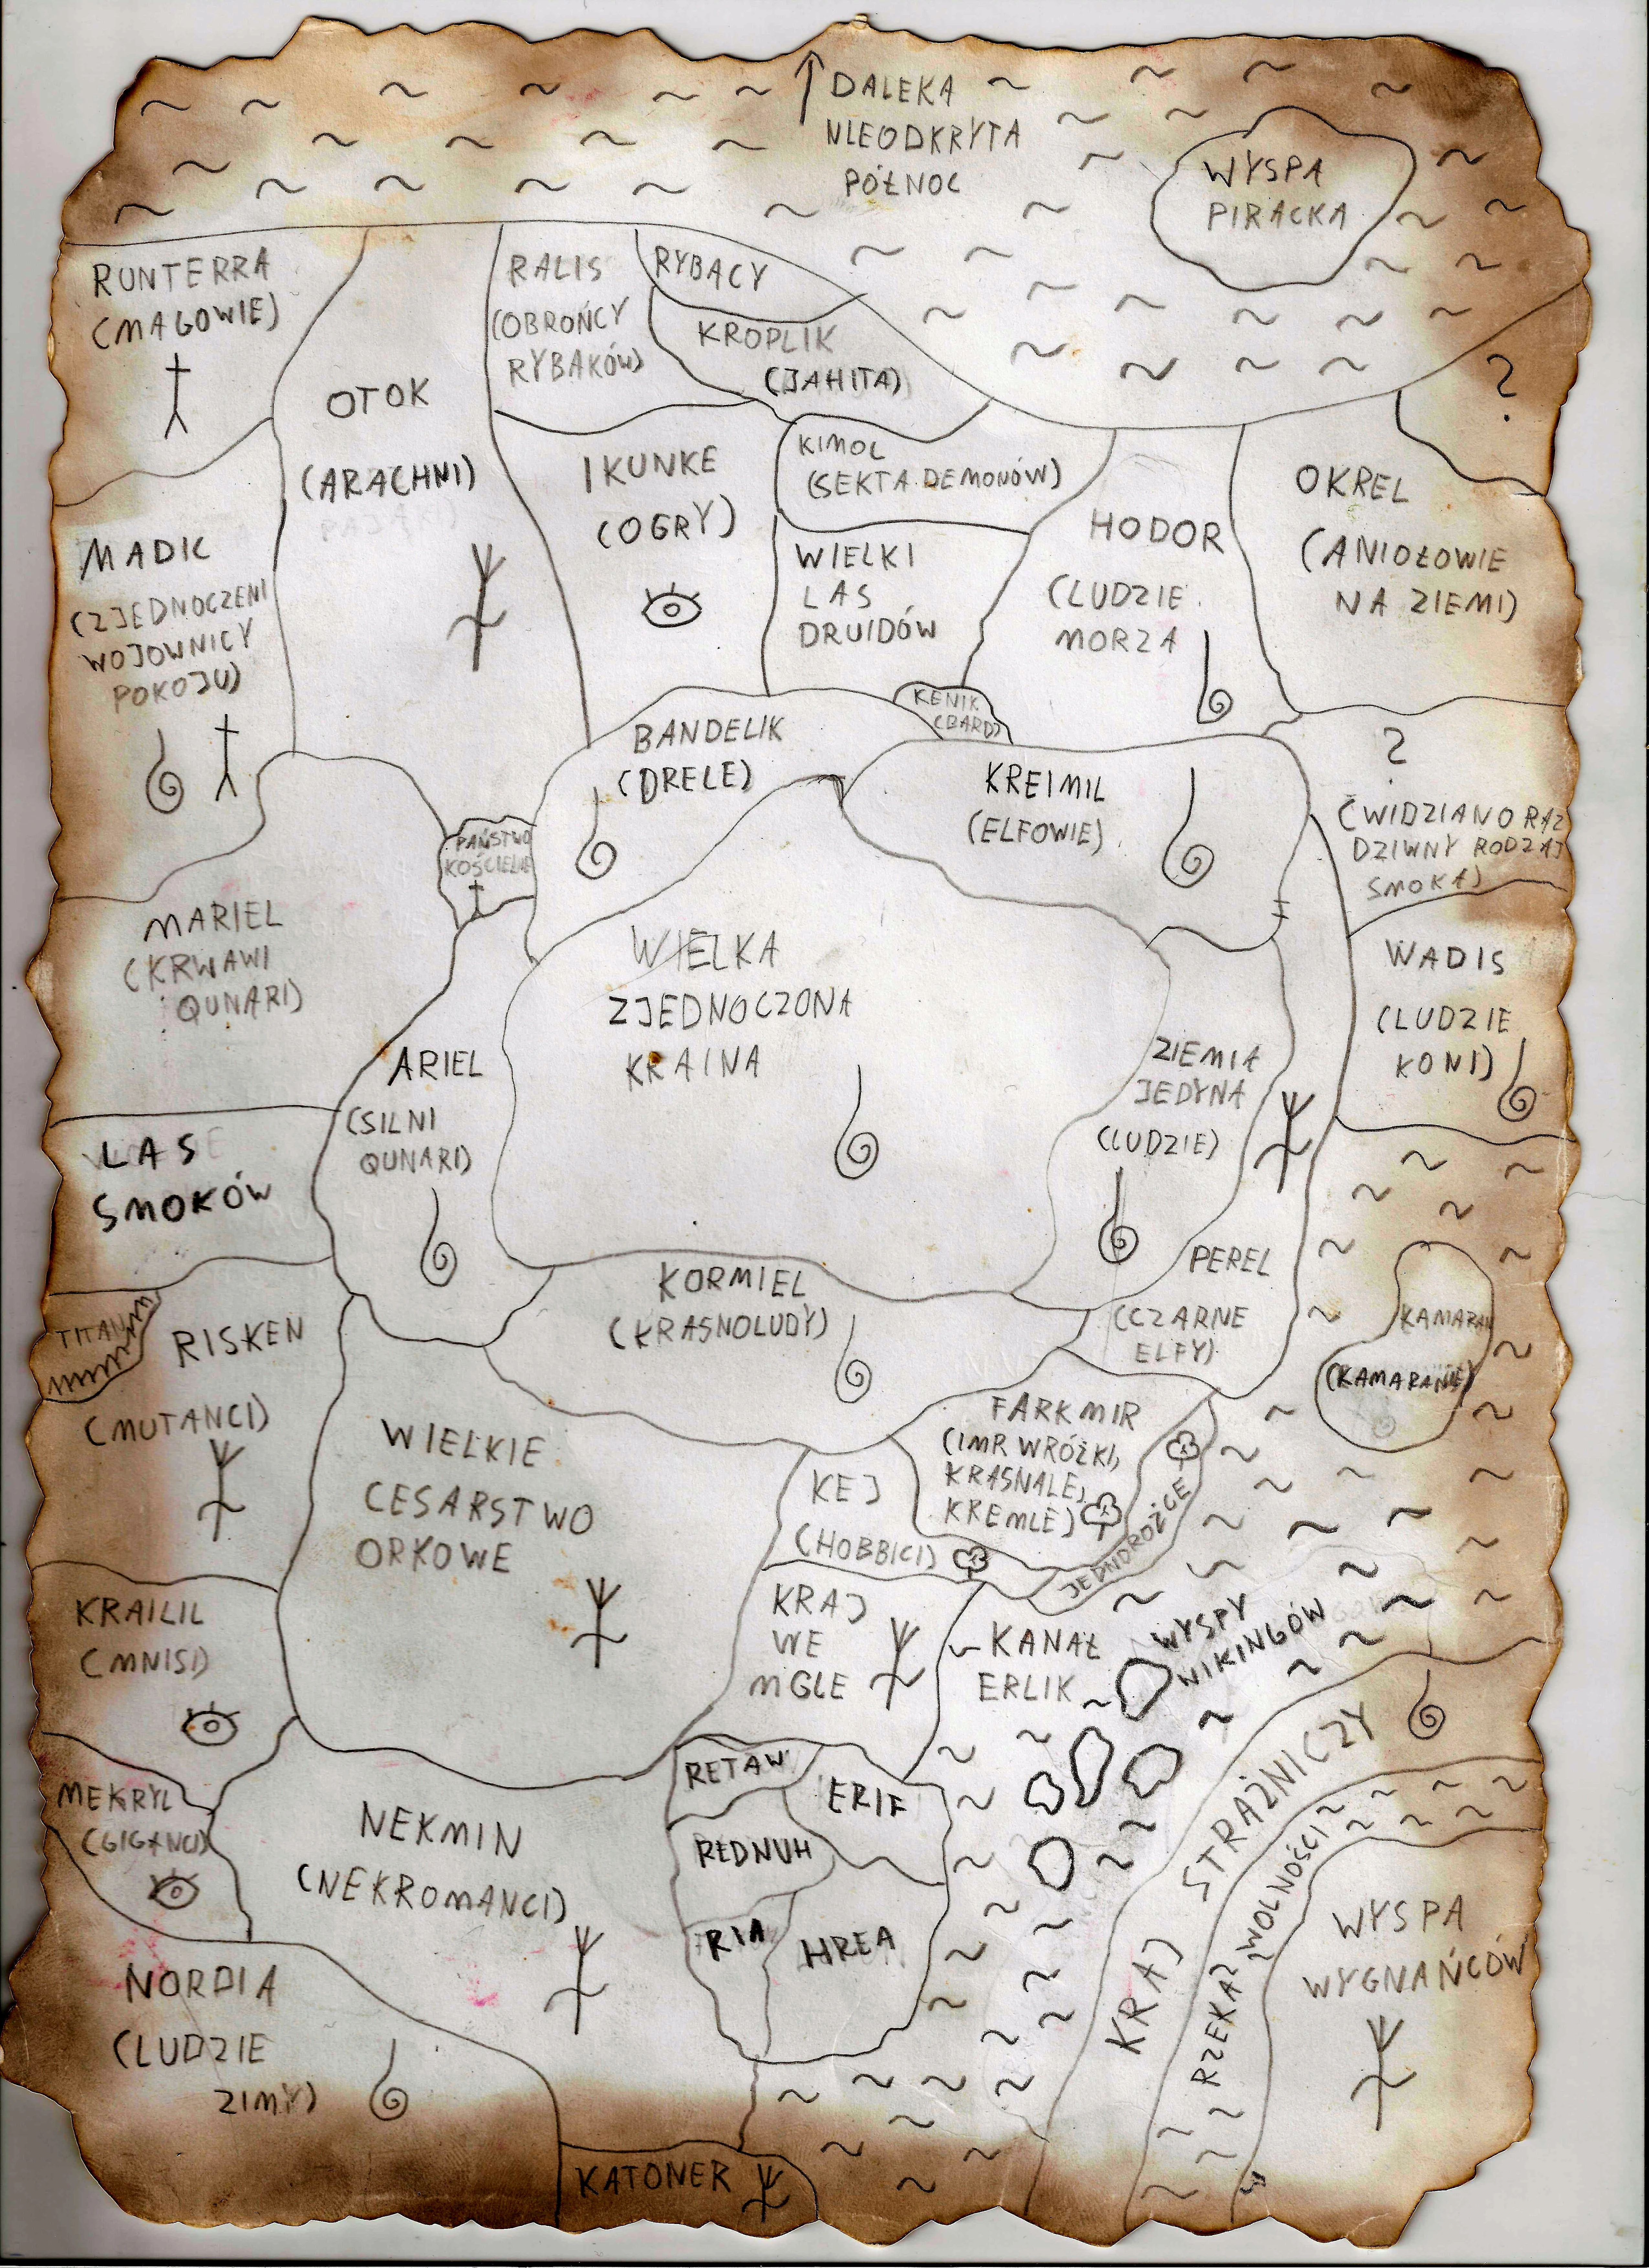 DALEKA
NIEODKRYTA
PÓŁNOC
WYSPA
PIRACKA
RUNTERRA
(MAGOWIE)
OTOK
(ARACHNI)
RALIS
(OBROŃCY
RYBAKÓW)
RYBACY
KROPLIK
(JAHITA)
?
IKUNKE
(OGRY)
KIMOL
(SEKTA DEMONÓW)
WIELKI
LAS
DRUIDÓW
HODOR
(LUDZIE
MORZA
OKREL
(ANIOŁOWIE
NA ZIEMI)
MADIC
(ZJEDNOCZENI
WOJOWNICY
POKOJU)
BANDELIK
(DRELE)
KENIK
(BARD)
KREIMIL
(ELFOWIE)
?
(WIDZIANO RAZ
DZIWNY RODZAJ
SMOKA)
PAŃSTWO
KOŚCIELNE
MARIEL
(KRWAWI
QUNARI)
WIELKA
ZJEDNOCZONA
KRAINA
WADIS
(LUDZIE
KONI)
ARIEL
(SILNI
QUNARI)
ZIEMIA
JEDYNA
(LUDZIE)
LAS
SMOKÓW
PEREL
(CZARNE
ELFY)
KORMIEL
(KRASNOLUDY)
TITAN
RISKEN
(MUTANCI)
KAMARAN
(KAMARANIE)
WIELKIE
CESARSTWO
ORKOWE
FARKMIR
(IMR WRÓŻKI,
KRASNALE,
KREMLE)
JEDNOROŻCE
KEJ
(HOBBICI)
KRAJ
WE
MGLE
KANAŁ
ERLIK
WYSPY
WIKINGÓW
KRAILIL
(MNISI)
MEKRYL
(GIGANCI)
NEKMIN
(NEKROMANCI)
RETAW
ERIF
REDNUH
RIA
HREA
KRAJ STRAŻNICZY
RZEKA WOLNOŚCI
WYSPA
WYGNAŃCÓW
NORDIA
(LUDZIE
ZIMY)
KATONER